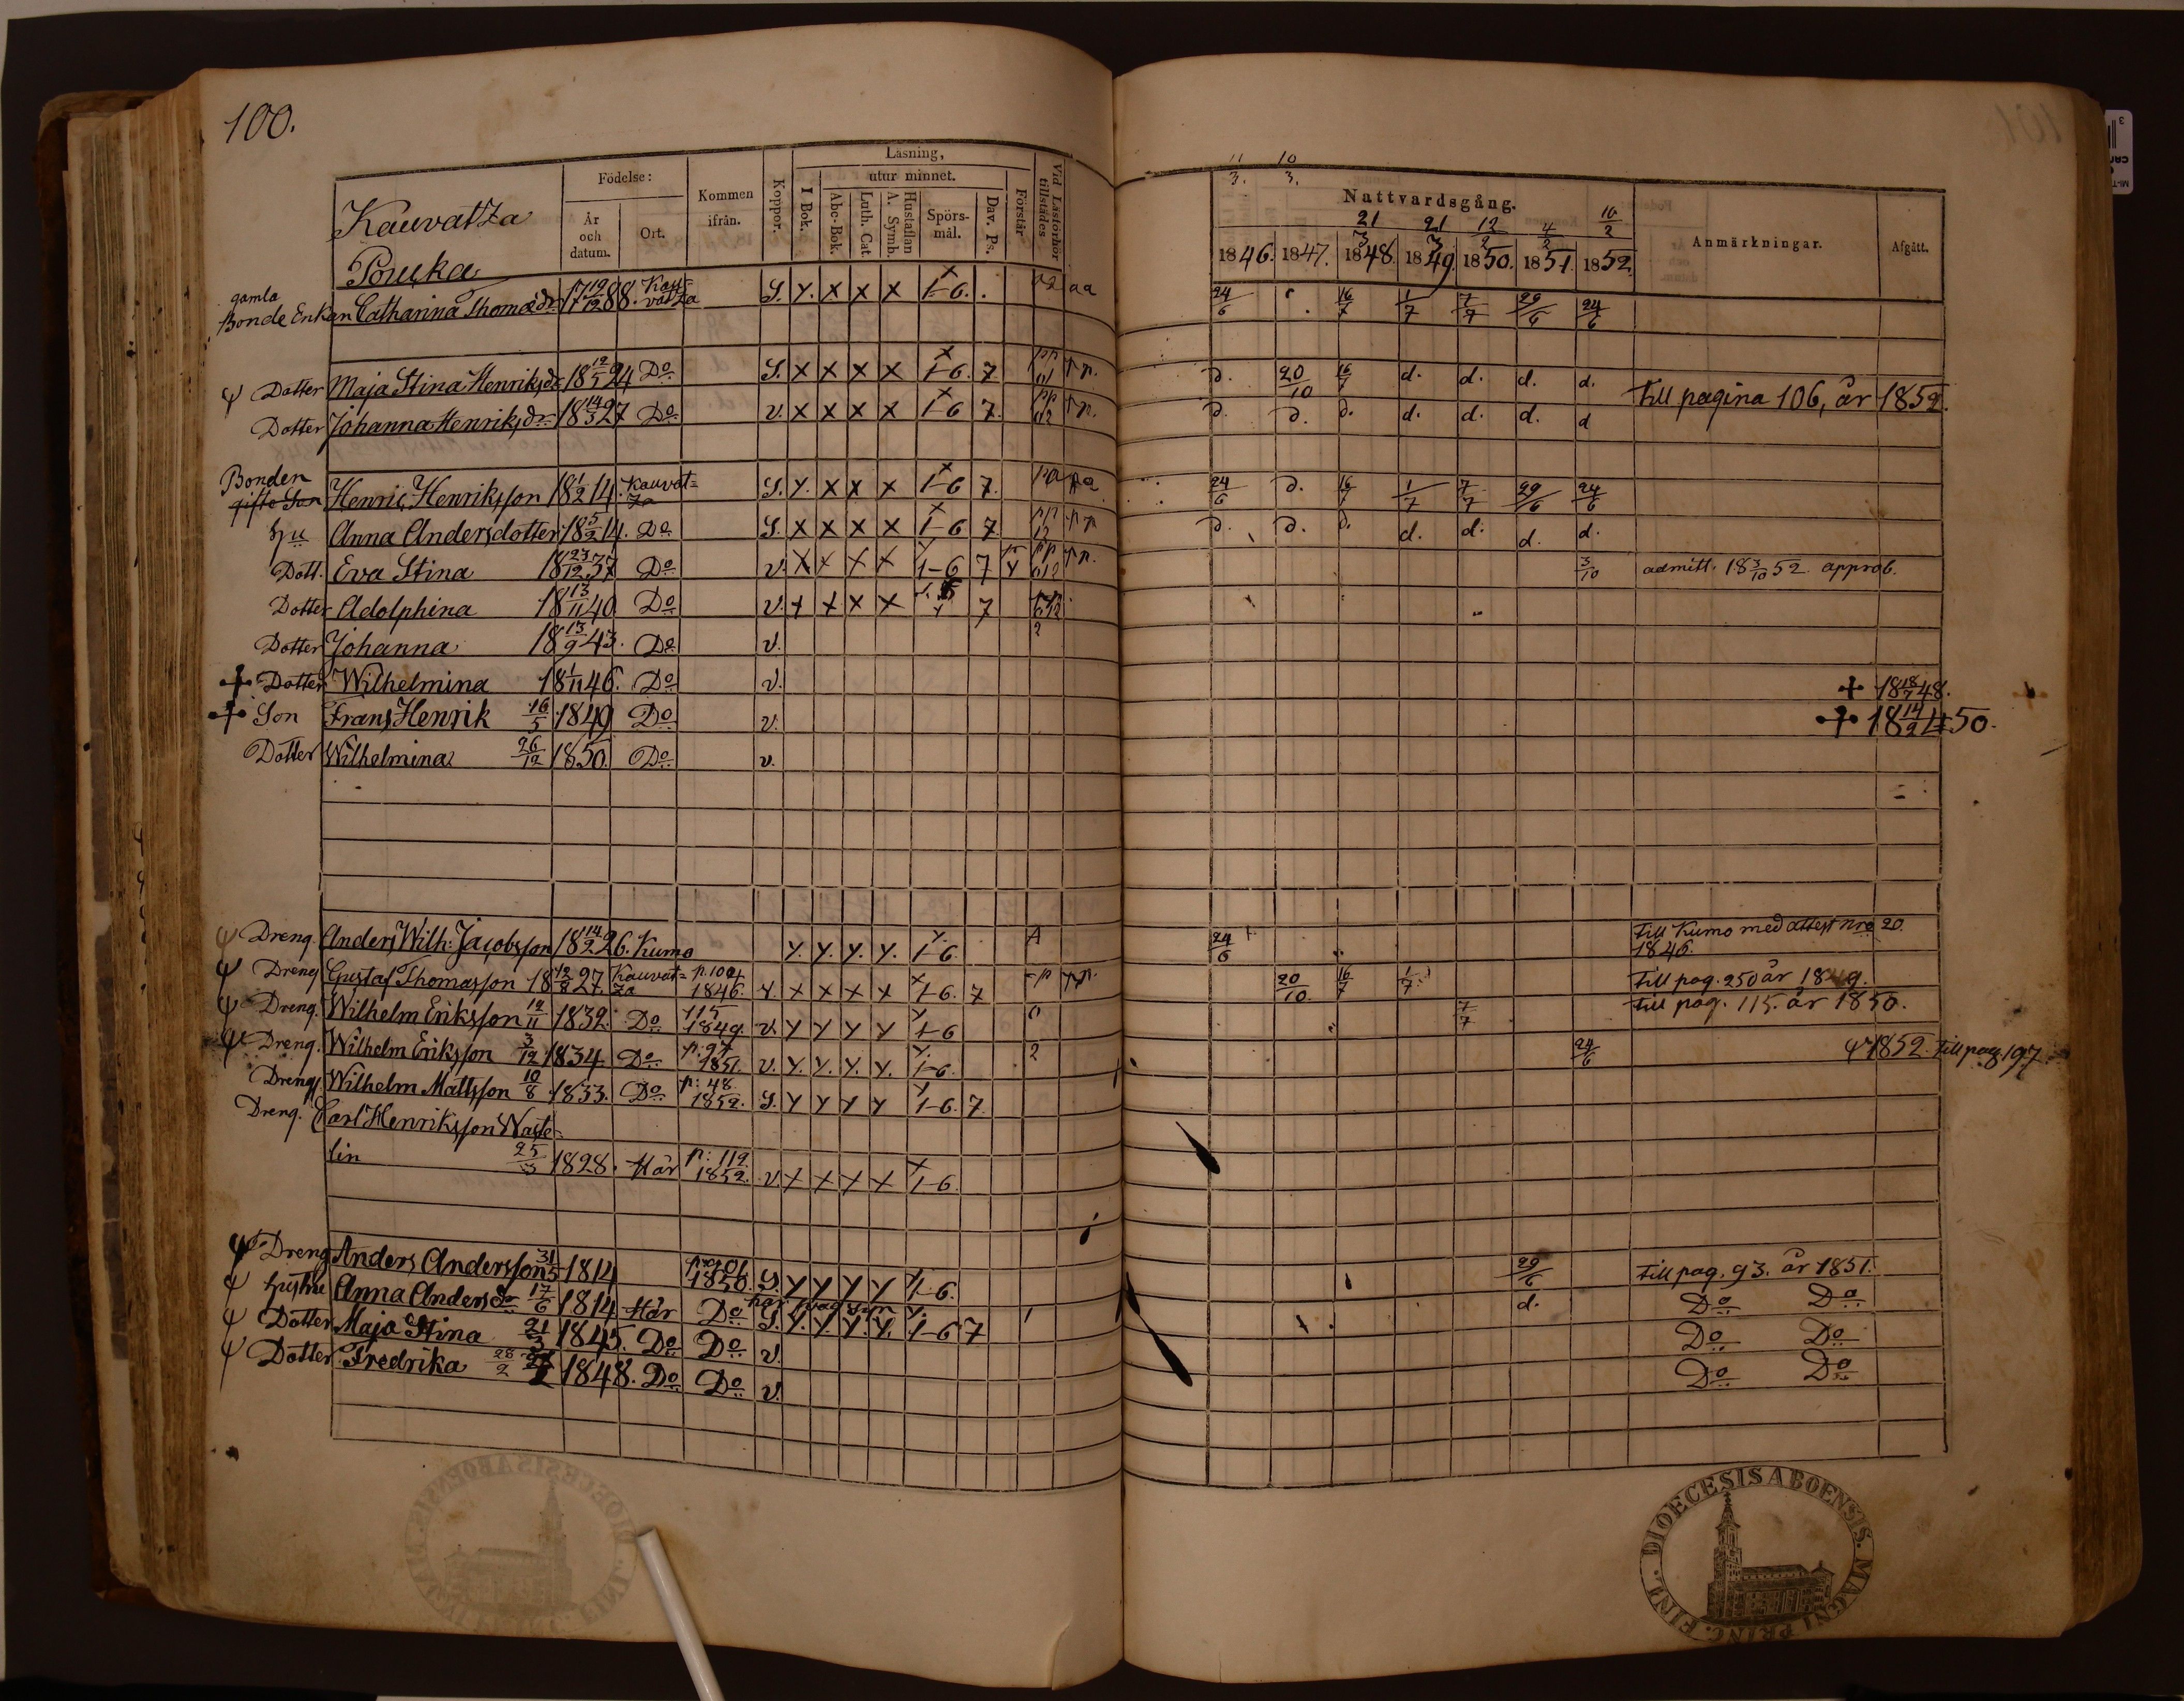 100.
Kauvatza
Pouka
Födelse:
År och datum.
Ort.
Kommen ifrån.
Koppor.
Läsning,
I Bok.
utur minnet.
Abc-Bok.
Luth. Cat.
Hustaflan A. Symb.
Spörsmål.
Dav. Ps.
Förstår
Vid Läsförhör tillstädes
11 10
3. 3.
Nattvardsgång.
21/3 21/3 12/2 4/2 16/2
1846. 1847. 1848. 1849. 1850. 1851. 1852.
Anmärkningar.
Afgått.
gamla
Bonde Enkan Catharina Thomædr 17 19/12 88. Kauvatza S. Y. X X X 1-6. aa 24/6 16/7 1/7 7/7 29/6 24/6
Dotter Maja Stina Henriksdr 18 12/5 24 Do S. X X X X 1-6. 7 d. 20/10 16/7 d. d. d. d. Till pagina 106, år 1852.
Dotter Johanna Henriksdr 18 14/3 27 Do v. X X X X 1-6 7. d. d. d. d. d. d. d
Bonden
gifte Son Henric Henriksson 18 1/2 14. Kauvatza S. Y. X X X 1-6 7. 24/6 d. 16/7 1/7 7/7 29/6 24/6
Hu Anna Andersdotter 18 5/2 14. Do S. X X X X 1-6 7 d. d. d. d. d. d. d.
Dott. Eva Stina 18 23/12 37 Do v. X X X X 1-6 7 3/10 admitt. 18 3/10 52 approb.
Dotter Adolphina 18 13/11 40 Do v. X X X X 7
Dotter Johanna 18 13/9 43. Do v.
Dotter Wilhelmina 18 1/11 46. Do v. 18 18/7 48.
Son Frans Henrik 16/5 1849 Do v. 18 14/2 50.
Dotter Wilhelmina 26/12 1850. Do v.
Dreng. Anders Wilh: Jacobsson 18 14/2 26. Kumo Y. Y. Y. Y. 1-6. 24/6 Till Kumo med attest nro 20. 1846.
Dreng Gustaf Thomasson 18 12/8 27. Kauvatza p. 104 1846. v. X X X X 1-6. 7 20/10 16/7 1/7 Till pag. 250 år 1849.
Dreng. Wilhelm Eriksson 12/11 1832. Do 115 1849. v. Y Y Y Y 1-6 7/7 Till pag. 115. år 1850.
Dreng. Wilhelm Eriksson 3/12 1834 Do p: 97 1851. v. Y. Y. Y. Y. 1-6. 24/6 1852. Till pag. 197
Dreng Wilhelm Mattsson 10/8 1833. Do p: 48. 1852. S. Y Y Y Y 1-6. 7.
Dreng. Carl Henriksson Wast-
lin 25/3 1828. Här p: 119. 1852. v. X X X X 1-6.
Dreng Anders Andersson 31/5 1814 1850. S. Y Y Y Y 1-6. 29/6 Till pag. 93. år 1851.
Hustru Anna Andersdr 17/6 1814 Här Do har svag syn S. Y. Y. Y. Y. 1-6 7 d. Do Do
Dotter Maja Stina 21/3 1845. Do Do v. Do Do
Dotter Fredrika 28/2 1848. Do Do v. Do Do
DIOECESIS ABOENSIS. MAGNI PRINC. FINL.